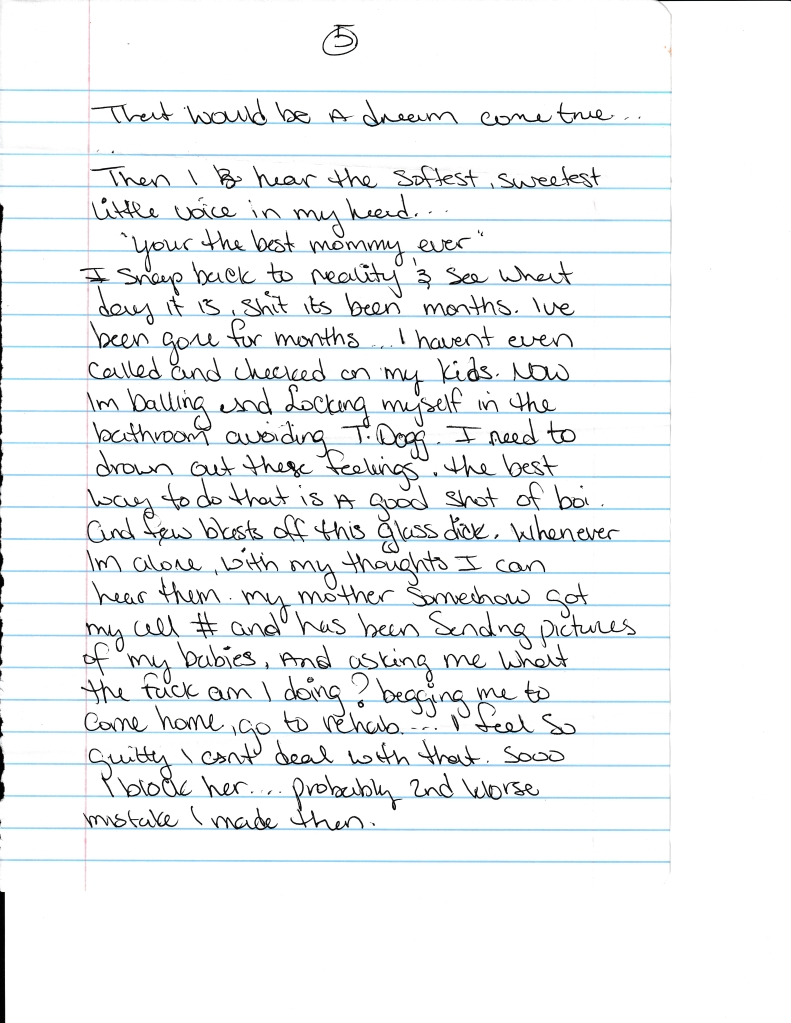 5
That would be A dream come true...
..
Then I hear the softest, sweetest
little voice in my head...
"your the best mommy ever"
I snap back to reality & see what
day it is, shit its been months. Ive
been gone for months... I havent even
called and checked on my kids. Now
Im balling and Locking myself in the
bathroom avoiding T. Dogg. I need to
drown out these feelings. the best
way to do that is A good shot of boi.
and few blasts off this glass dick. Whenever
Im alone, with my thoughts I can
hear them. my mother Somehow got
my cell # and has been Sendng pictures
of my babies, And asking me what
the fuck am I doing? begging me to
come home, go to rehab.... I feel so
guilty I cant deal with that. Sooo
I block her.... probably 2nd Worse
mistake I made then.